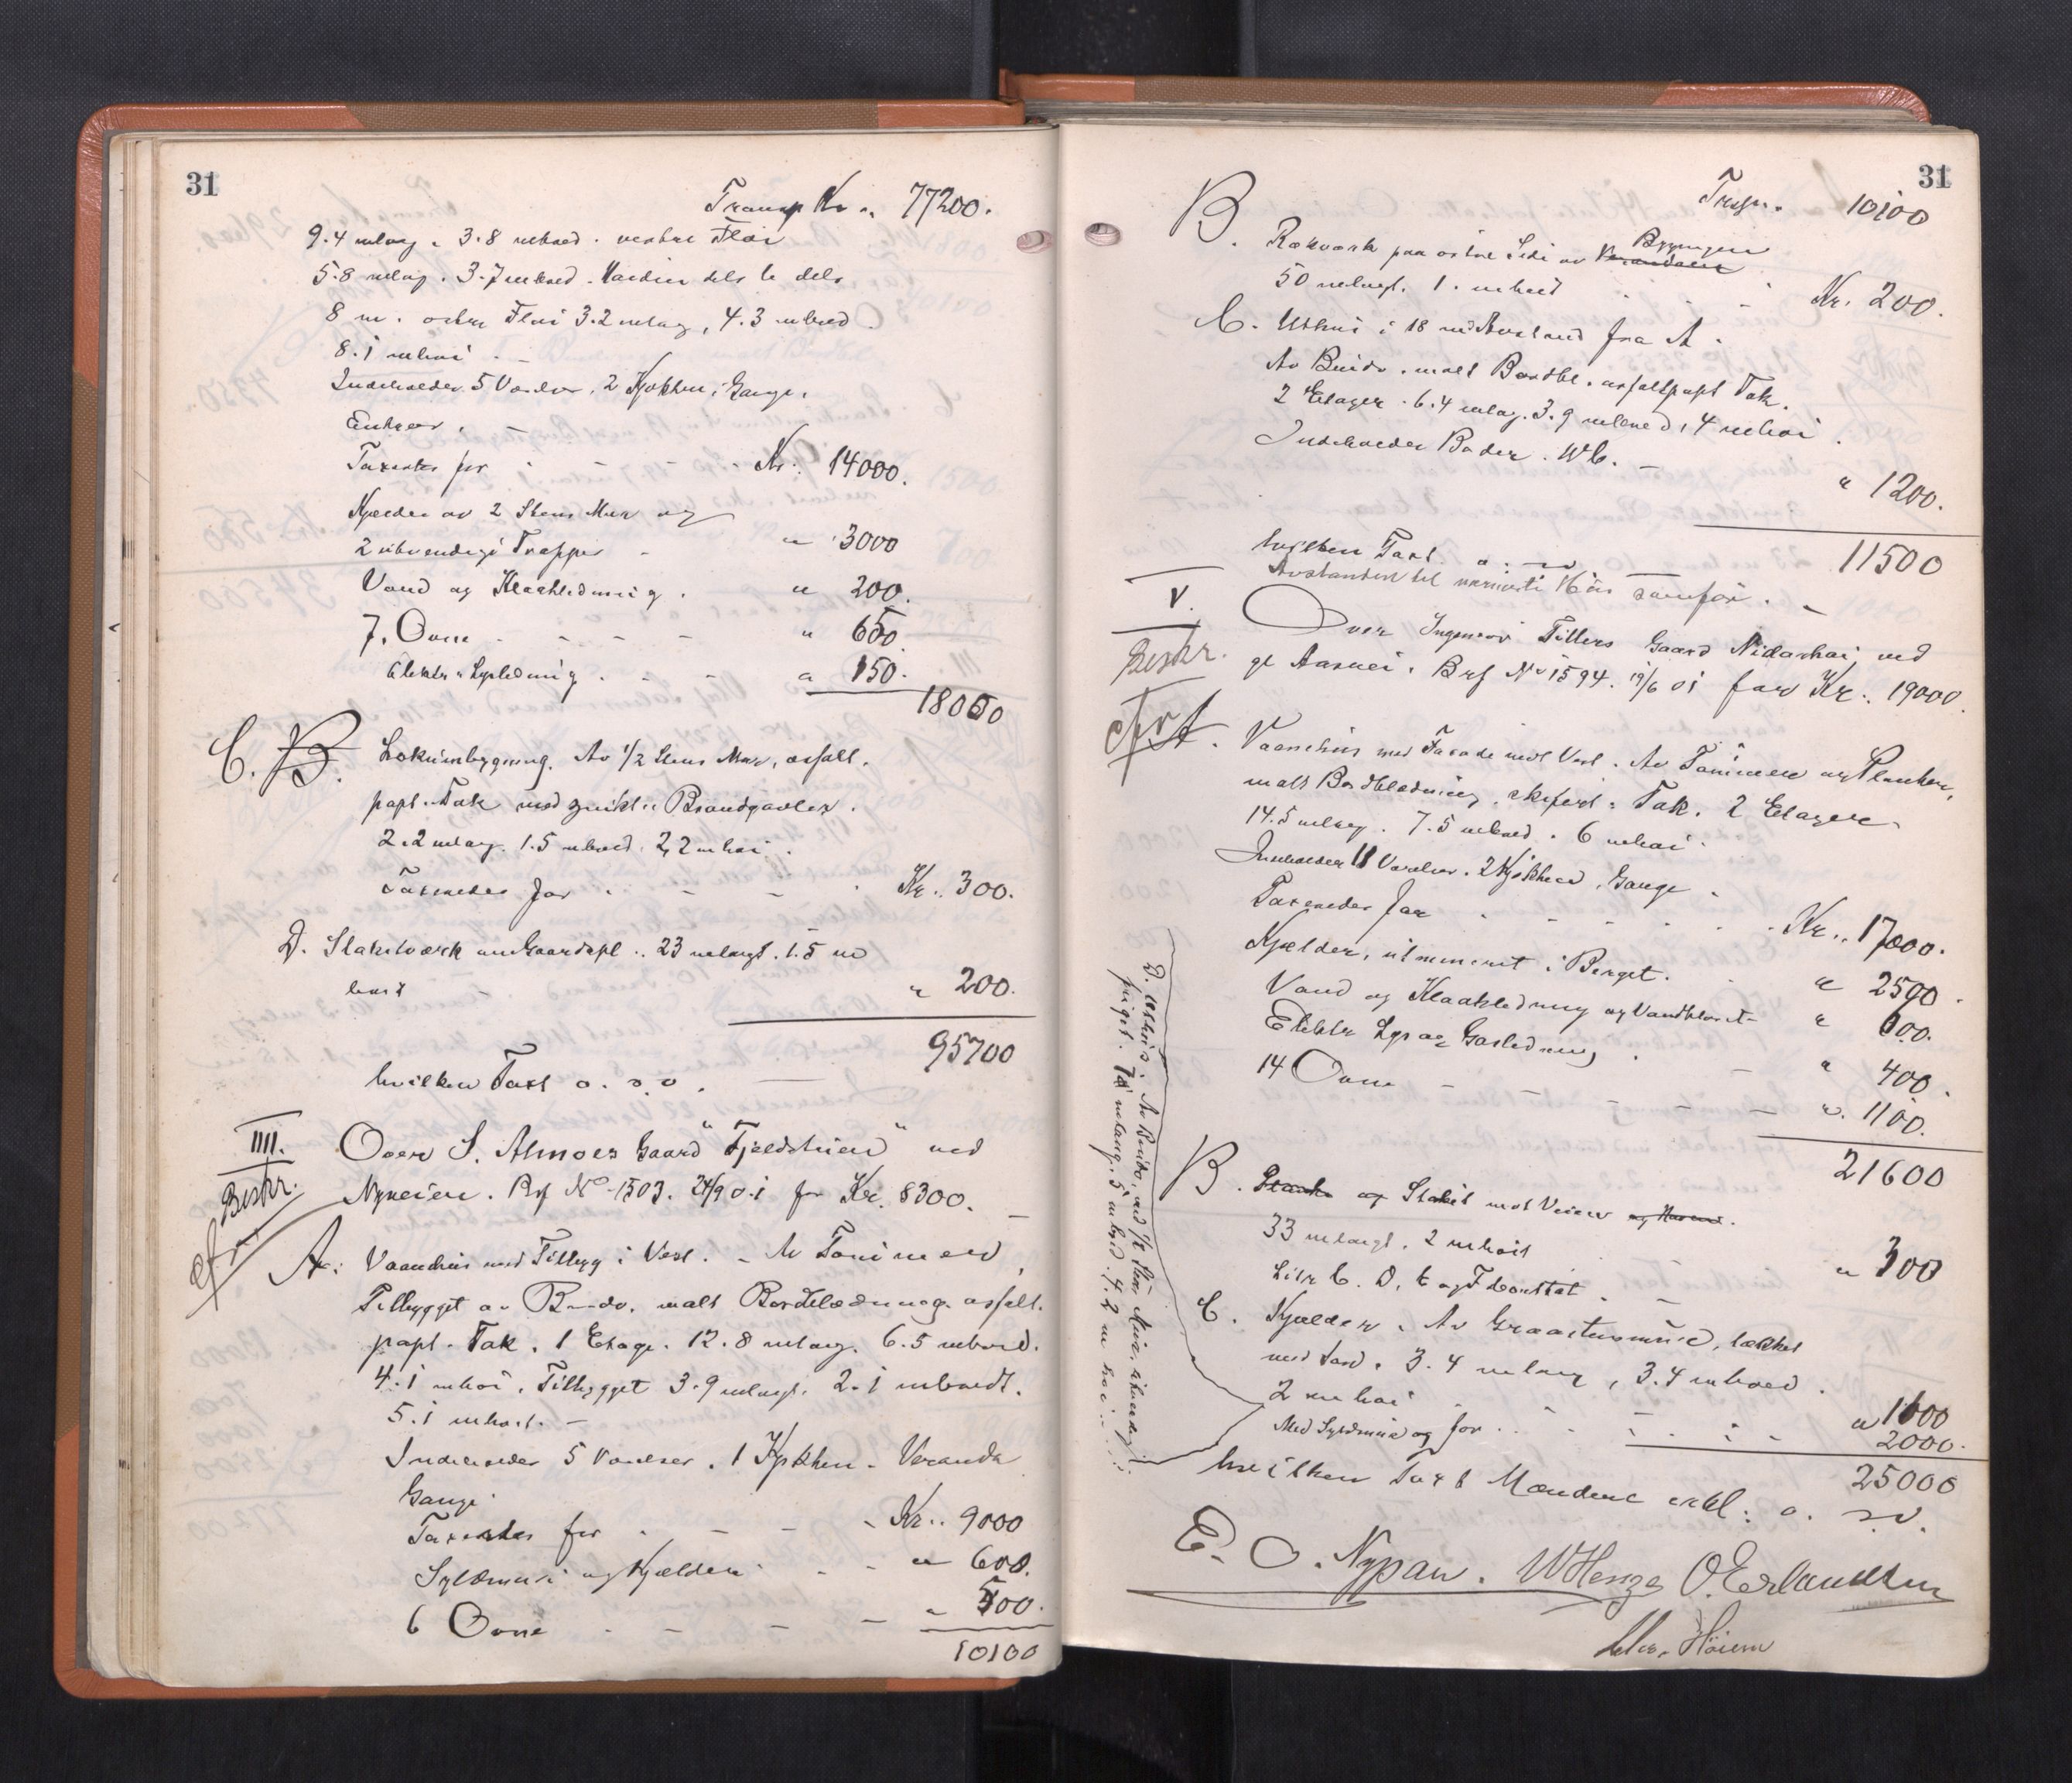 31
Transp Kr. „ 77200.
9.4 m lang, 3.8 m bred. vestre Fløi
5.8 m lang. 3.7 m bred. Væsten dels to dels
8 m. østre Fløi 3.2 m lang, 4.3 m bred.
8.1 m høi. -
Indeholder 5 Værelser, 2 Kjøkken, Gange,
Entreer. -
Taxertes for - - - - Kr. 14000.
Kjælder av 2 Stens Mur og
2 utvendige Trapper - „ 3000
Vand og Kloakledning. „ 200.
7. Ovne - - - - „ 650
Elektr. Lysledning. - - „ 150.
18000
C. B. Lokumbygning. Av 1/2 Stens Mur, asfalt.
papt. Tak med zinkt. Brandgavler.
2.2 m lang. 1.5 m bred. 2,2 m høi.
Taxeredes for - - - Kr. 300.
D. Stakitværk om Gaardspl. 23 m langt. 1.5 m
høit - „ 200.
95700
hvilken Taxt o. s. v.
IIII. Over S. Almoes Gaard "Fjeldstuen" ved
Beskr. Nyveien. Brf No 1503. 24/9 01 for Kr. 8300. -
A. Vaanehus med Tilbyg i Vest. - Av Tømmer,
Tilbygget av Bindv. malt Bordklædning. asfalt.
papt. Tak. 1 Etage. 12.8 m lang. 6.5 m bred.
4.1 m høi, Tilbygget 3.9 m langt, 2.1 m bredt.
5.1 m høit. -
Indeholder 5 Værelser, 1 Kjøkken - Veranda
Gange.
Taxertes for - - - - Kr. 9000
Syldmur og Kjælder - - „ 600.
6 Ovne - - - - „ 500.
10100
31
Trspt. 10100
B. Rækværk paa østre Side av Verandaen Bygningen
50 m langt. 1. m høit - - - Kr. 200.
C. Uthus i 18 m Avstand fra A.
Av Bindv. malt Bordkl. asfaltpapt Tak.
2 Etager. 6.4 m lang. 3.9 m bred, 4 m høi.
Indeholder Boder. WC. -
„ 1200.
11500
hvilken Taxt o. s. v.
Avstanden til nærmeste Hus som før. -
V. Over Ingeniør Tillers Gaard Nidarhøi ved
Beskr. gl Aasvei. Brf No 1594. 19/6 01 for Kr. 19000.
A. Vaanehus med Facade mot Vest. Av Tømmer og Planker,
malt Bordklædning, skifert. Tak. 2 Etager
14.5 m lang. 7.5 m bred. 6 m høi.
Indeholder 11 Værelser. 2 Kjøkken, Gange.
Taxeredes for - - - - Kr. 17000.
Kjælder, utmineret i Berget. „ 2500.
Vand og Kloakledning og Vandkloset - „ 600.
Elektr Lys og Gasledning - „ 400.
14 Ovne - - - - „ 1100.
21600
B. Planke og Stakit mot Veien og Haven.
33 m langt, 2 m høit „ 300
Litr C. D. E og F bortfat. -
C. Kjælder. Av Graastensmur, tækket
med Jord. 3.4 m lang, 3.4 m bred.
2 m høi „ 1600
Med Syldmur og for - - - 2000.
25000
hvilken Taxt Mændene erkl. o. s. v.
E. O. Nypan. W Henze O. Erlandsen
Høiem
D. Uthus. Av Bindv. med 1/2 Stens Mur, utvendig
pusset. 7 m lang. 5 m bred. 4.2 m høi